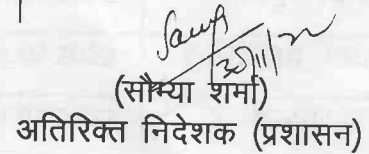 (सौम्या शर्मा)
अतिरिक्त निदेशक (प्रशासन)